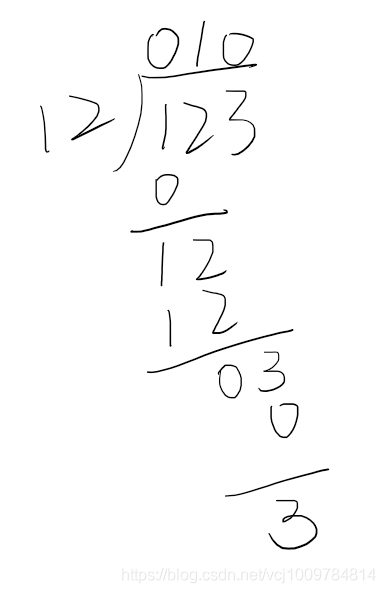 010
12 123
0
12
12
03
0
3
https://blog.csdn.net/vcj1009784814